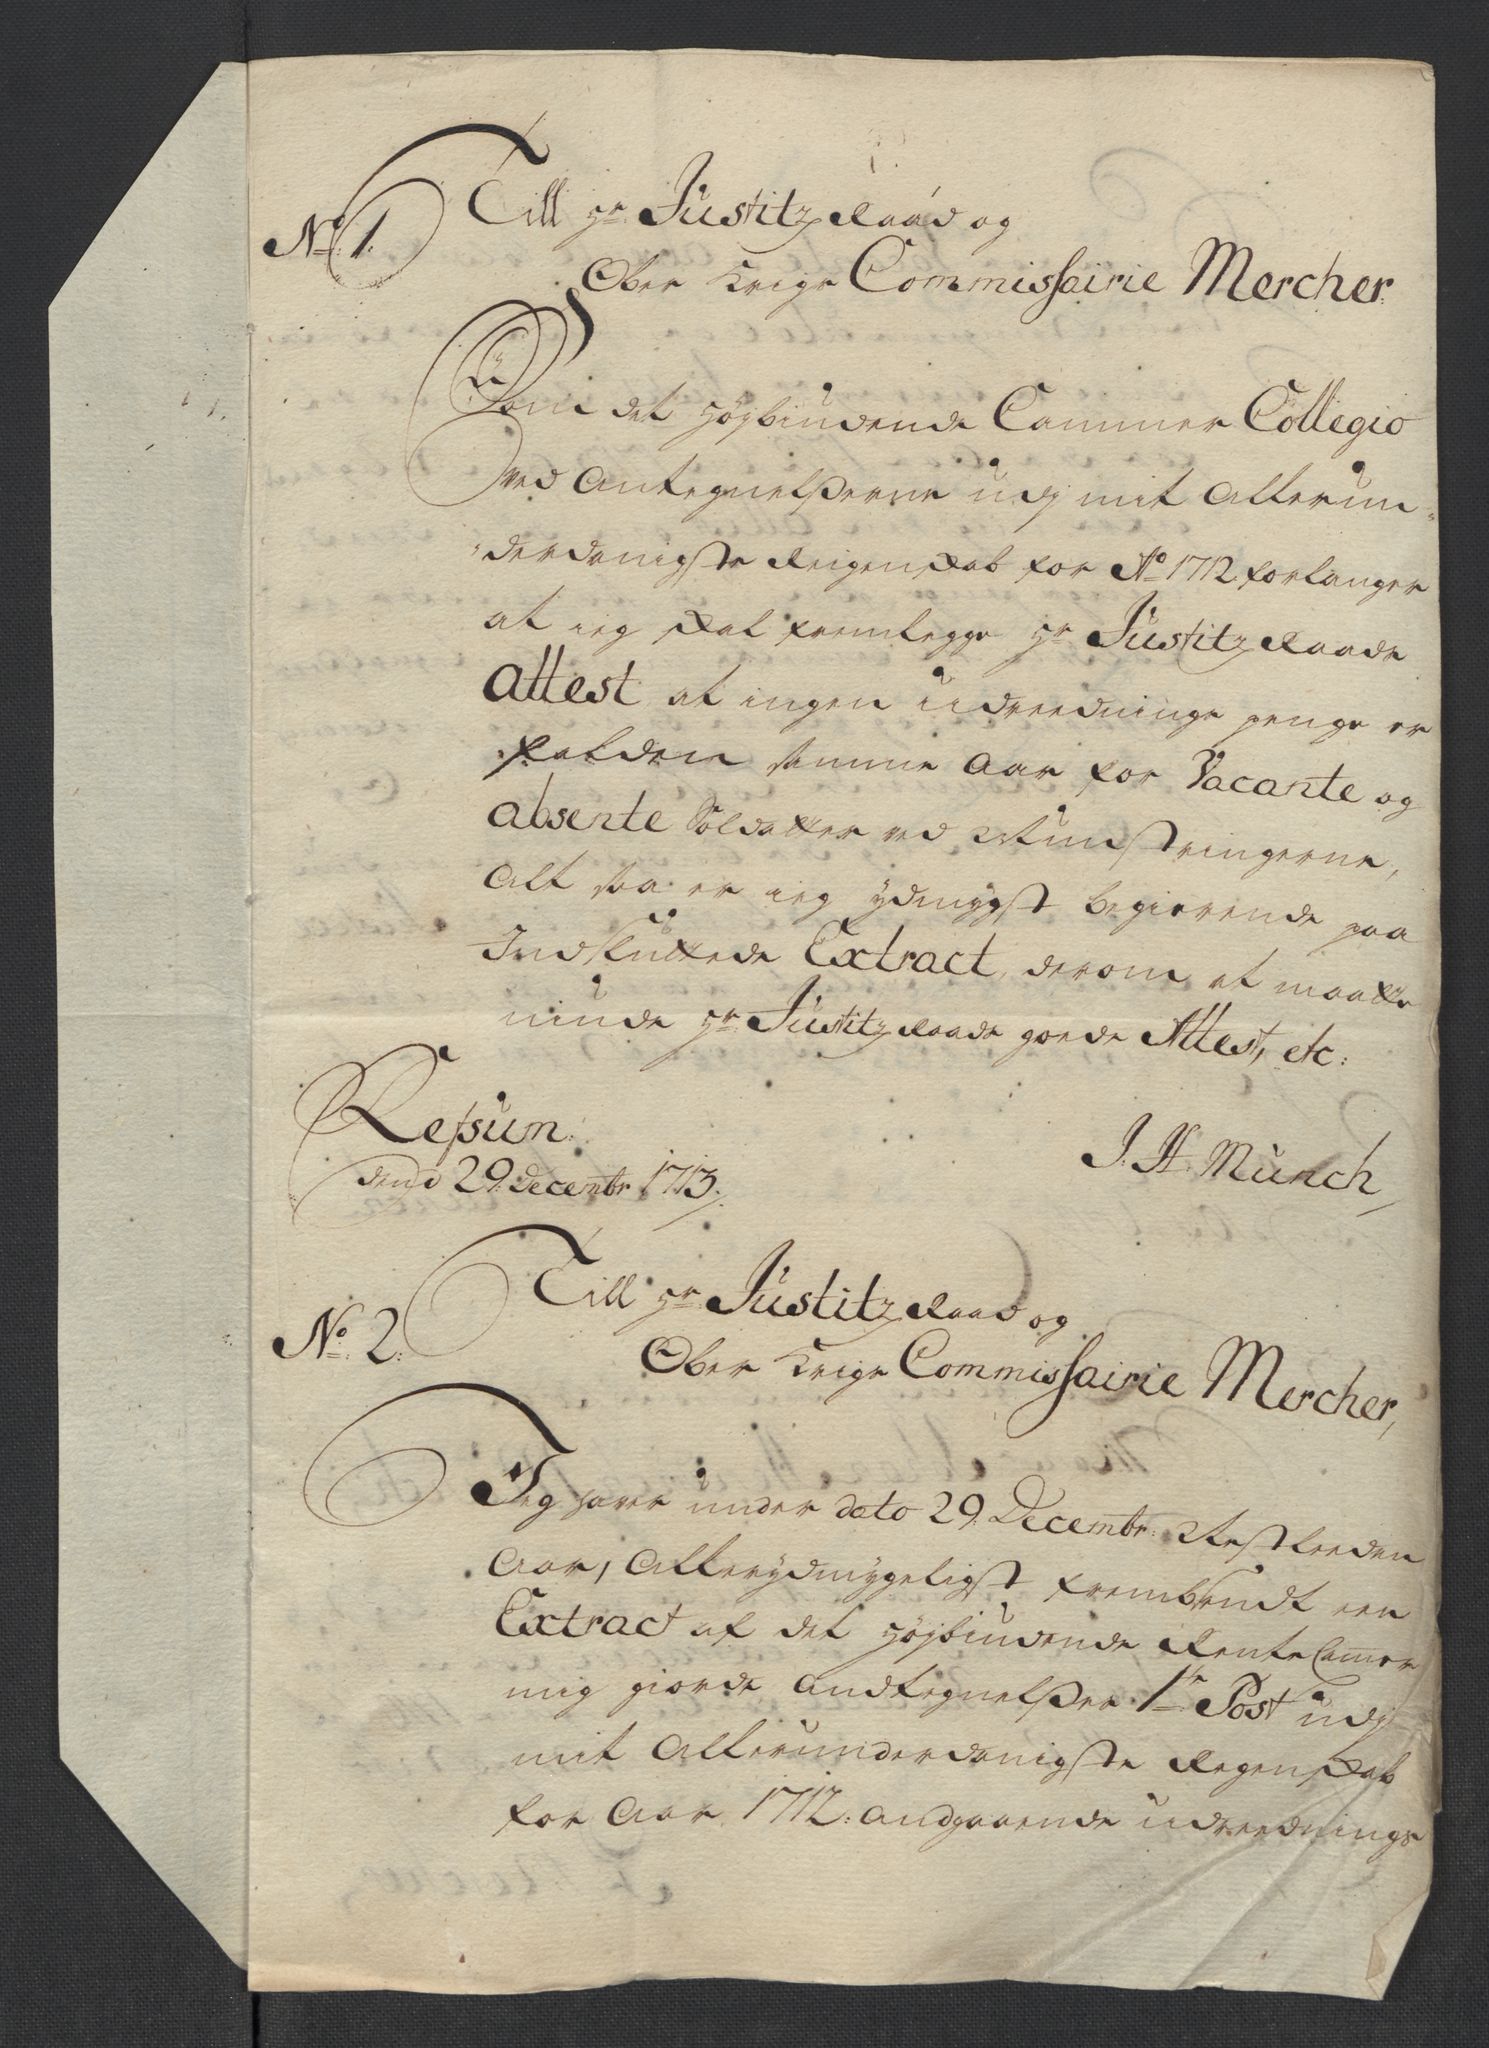 No. 1.
Till Hr Justitz Raad og
Ober Krigs Commissairie Mercher.
Som det Høybiudende Cammer Collegio
ved Antegnelsserne udj mit Allerun-
-derdanigste Reigenskab for Ao 1712 forlanger
at ieg skal fremlegge Hr Justitz Raads
Attest at ingen Udreednings penge er
falden samme Aar for Vacante og
absente Soldatter ved Mynsteringerne,
Alt saa er ieg ydmygst begierende paa
Indsluttede Extract, derom at maatte
niude Hr Justitz Raads goede Attest, etc:
Ressum
dend 29 decembr 1713.
J. H. Munch
No. 2.
Till Hr Justitz Raad og
Ober Krigs Commissairie Mercher,
Jeg haver under dato 29. Decembr: Nestleeden
Aar, Allerydmygeligst frembsendt een
Extract af det Høybiudende Rente Camer
mig giorde Andtegnelsser 1te Post udj
mit Allerunderdanigste Regenskab
for Aar 1712. andgaaende Udreednings